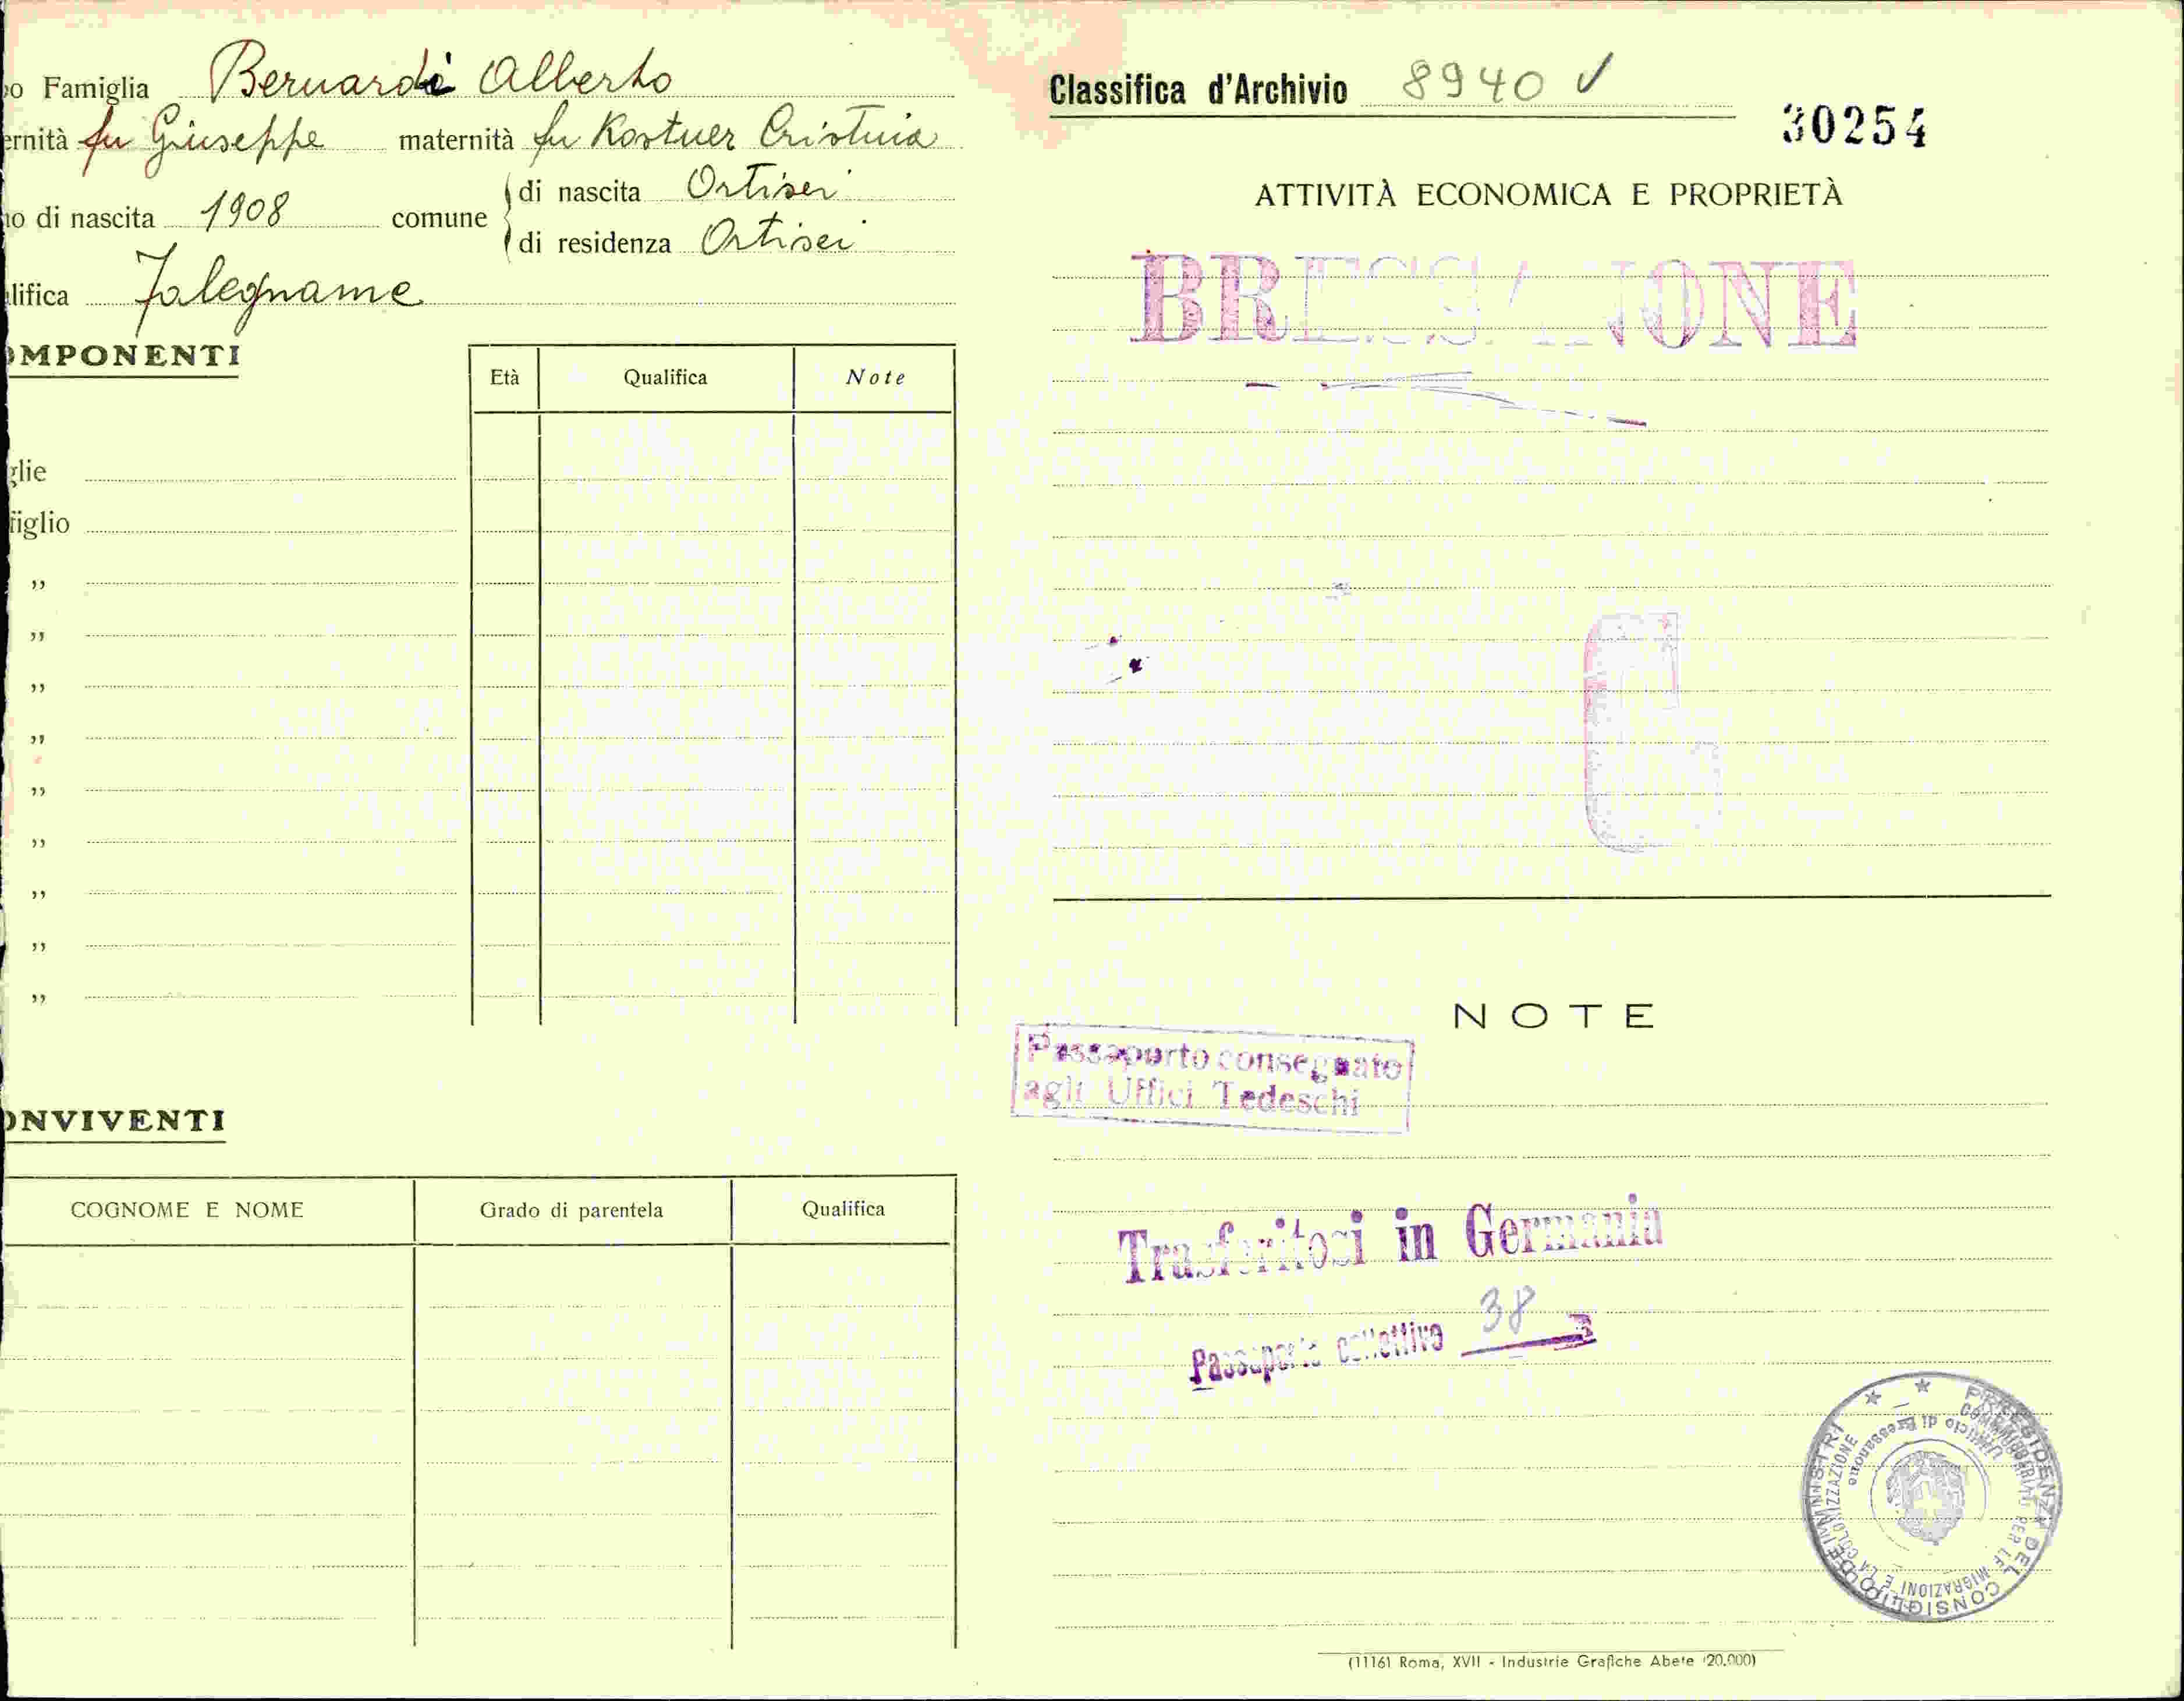 o Famiglia Bernardi Alberto
ernità fu Giuseppe maternità fu Kostner Cristina
o di nascita 1908 comune di nascita Ortisei
di residenza Ortisei
lifica Falegname
OMPONENTI
Età Qualifica Note
glie
figlio
,,
,,
,,
,,
,,
,,
,,
,,
,,
ONVIVENTI
COGNOME E NOME Grado di parentela Qualifica
Classifica d'Archivio 8940 √
30254
ATTIVITÀ ECONOMICA E PROPRIETÀ
BRESSANONE
NOTE
Passaporto consegnato
agli Uffici Tedeschi
Trasferitosi in Germania
Passaporto collettivo 38
PRESIDENZA DEL CONSIGLIO DEI MINISTRI
COMMISSARIATO PER LE MIGRAZIONI E LA COLONIZZAZIONE
Ufficio di Bressanone
(11161 Roma, XVII - Industrie Grafiche Abete 20.000)